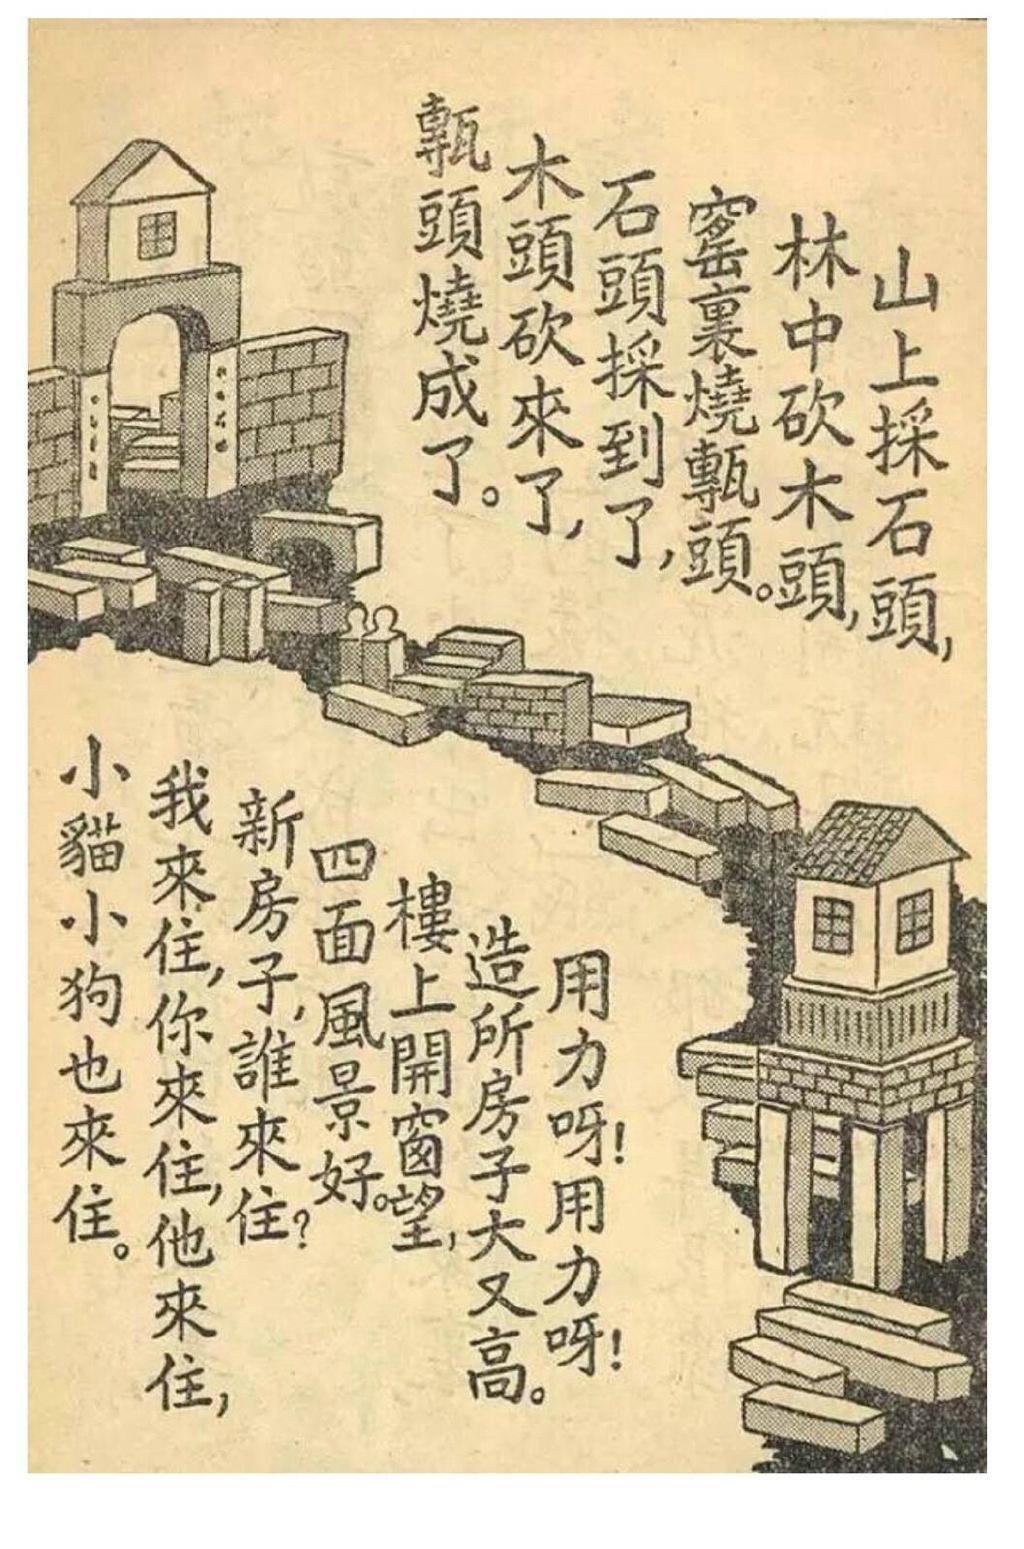 山上採石頭,
林中砍木頭,
窰裏燒甎頭。
石頭採到了,
木頭砍來了,
甎頭燒成了。
用力呀!用力呀!
造所房子大又高。
樓上開窗望,
四面風景好。
新房子,誰來住?
我來住,你來住,他來住,
小貓小狗也來住。